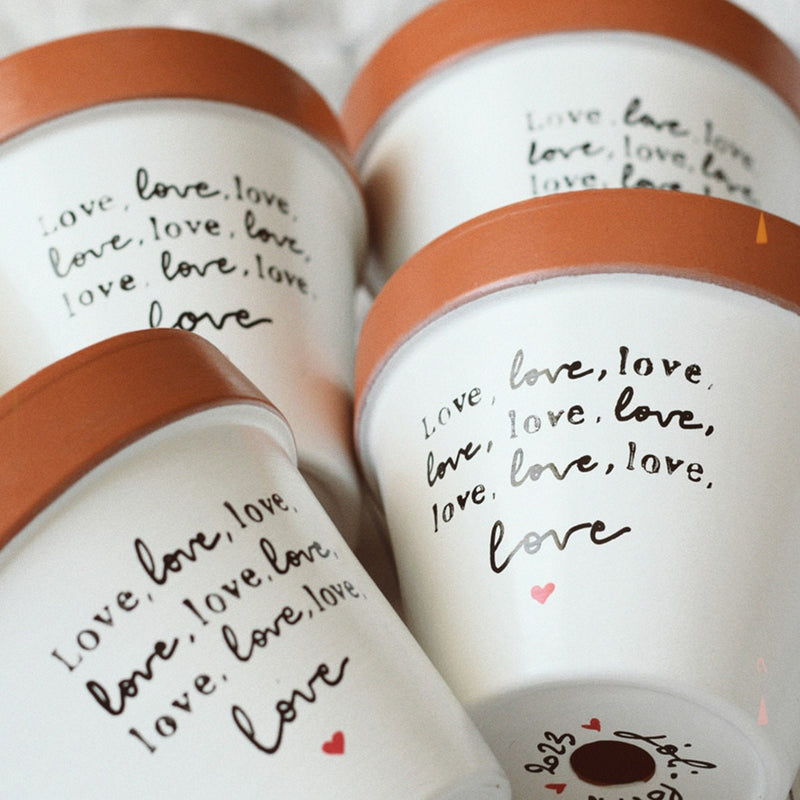 Love, love, love,
love, love, love,
love, love, love,
love
Love, love, love
love, love, love
love, love, lo
Love, love, love,
love, love, love,
love, love, love,
love
Love, love, love,
love, love, love,
love, love, love,
love
2023